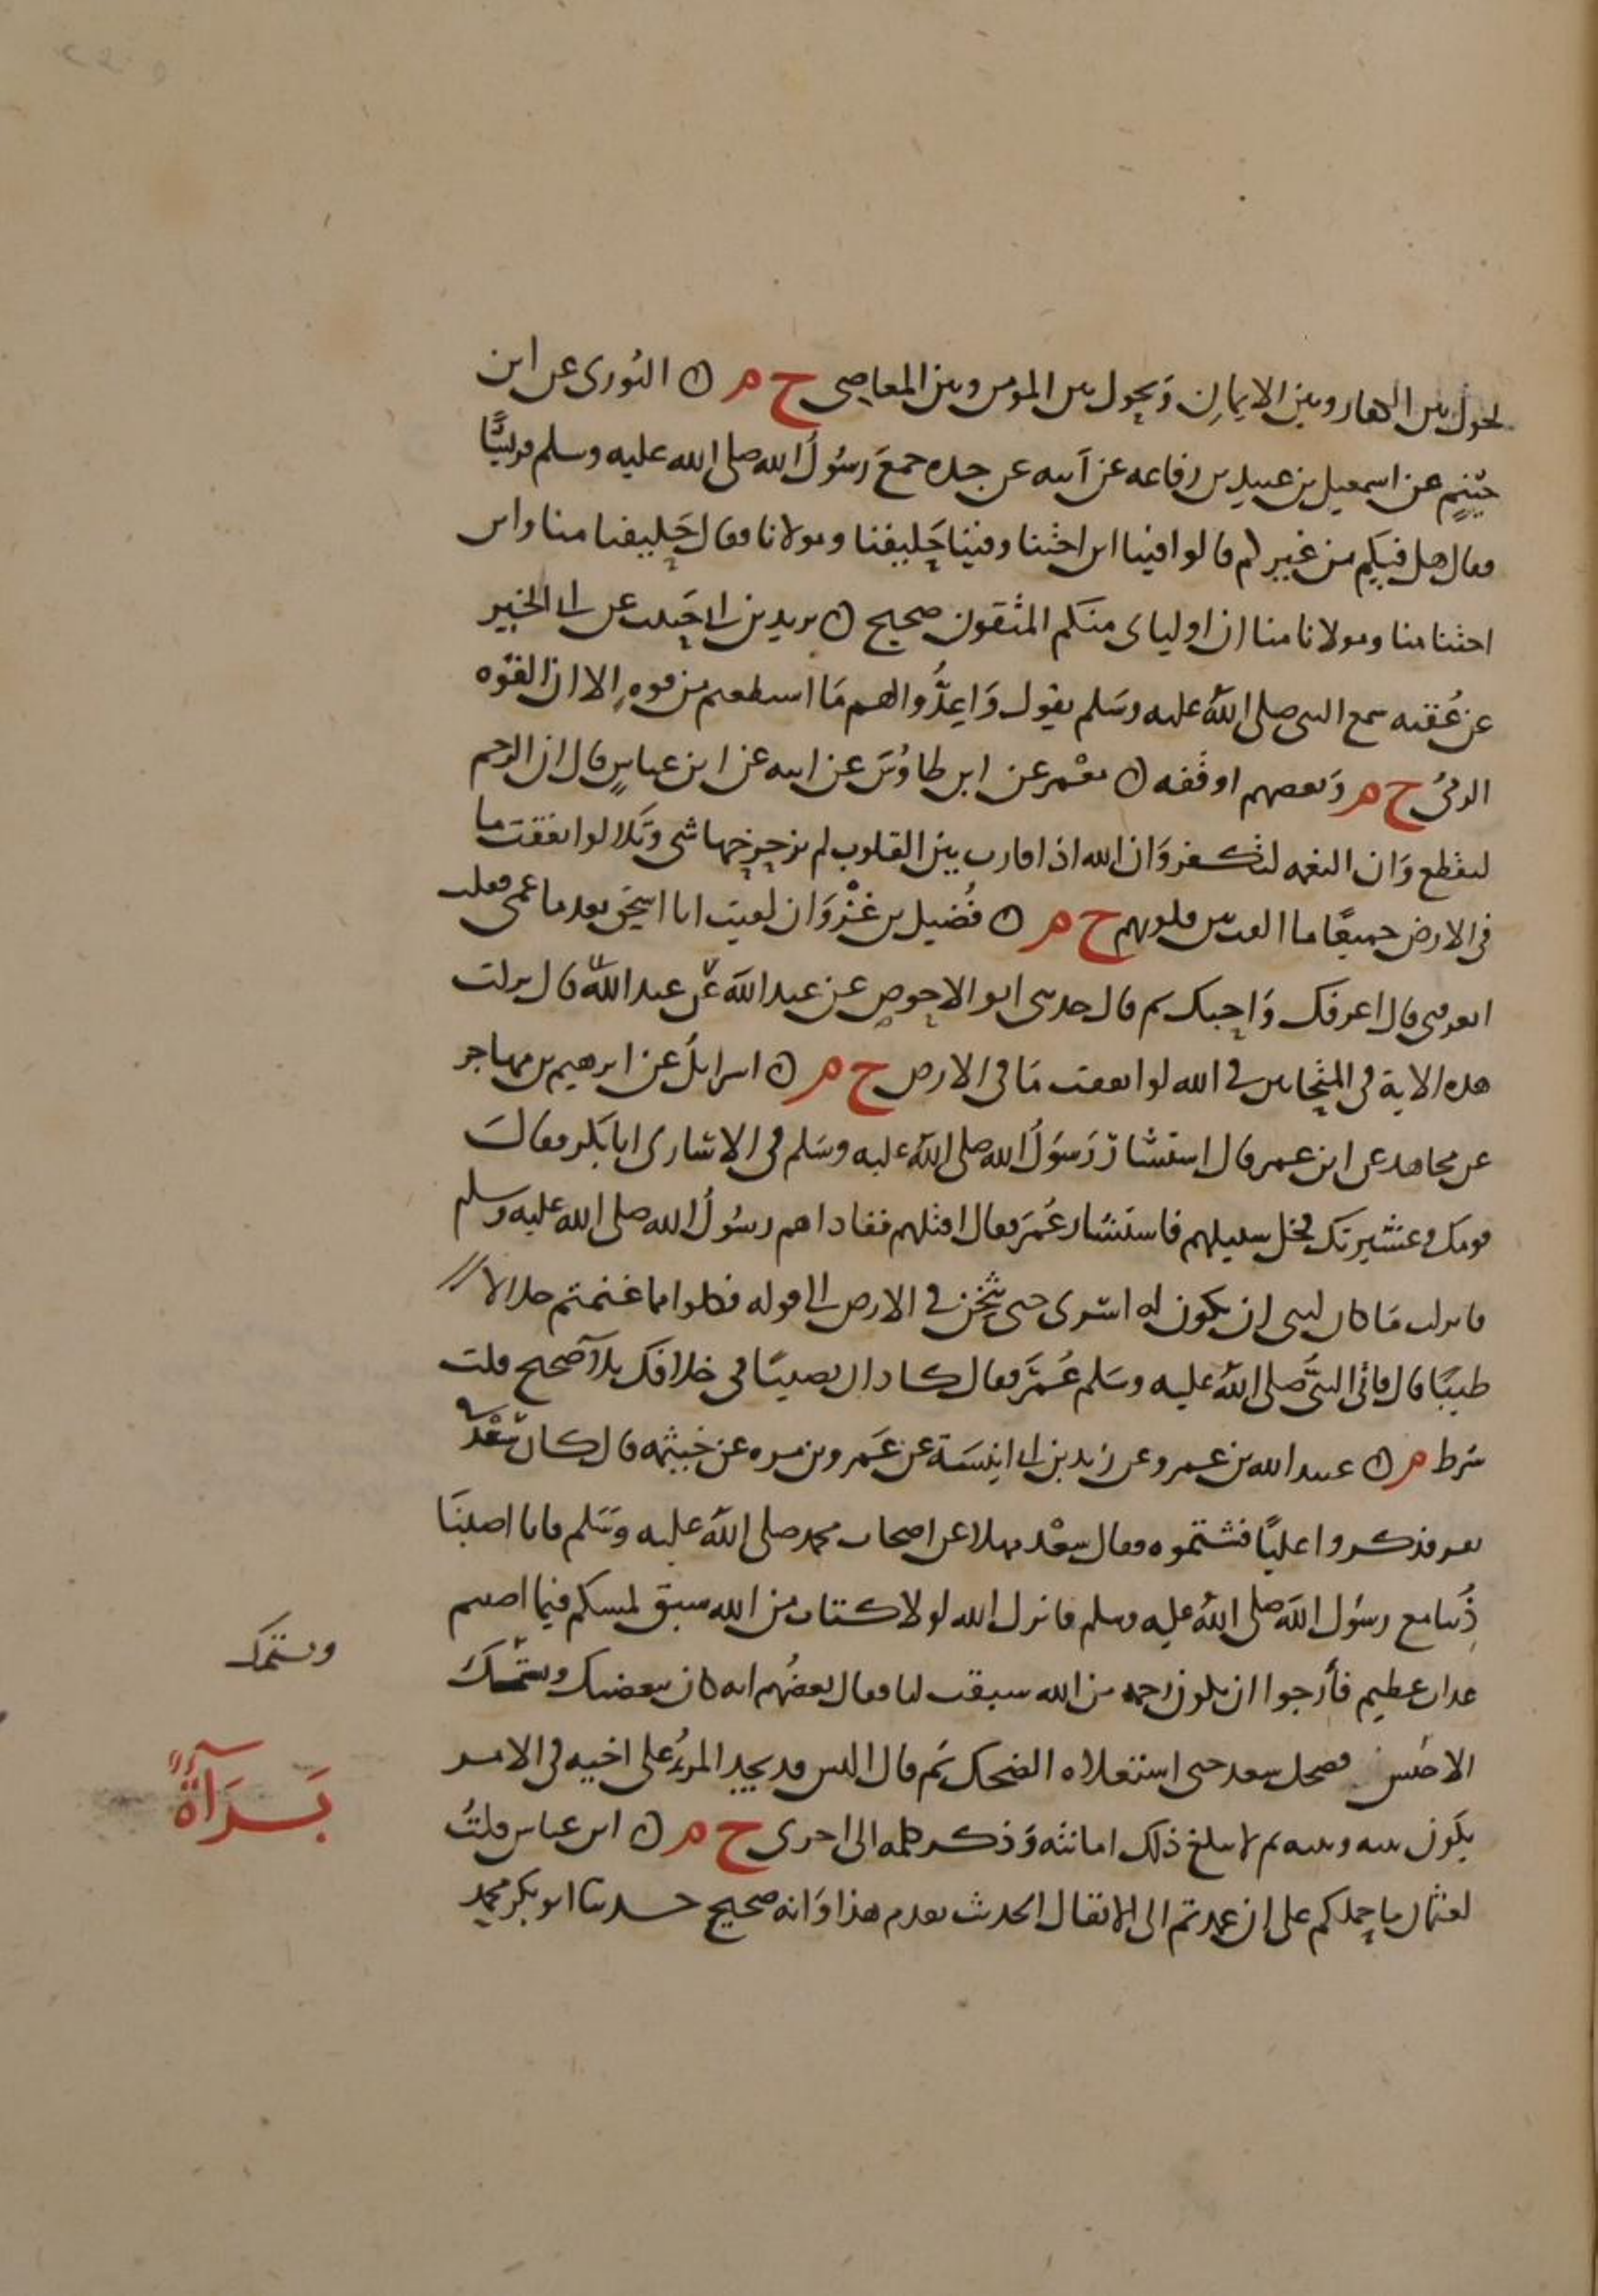 يحول بين الكفار وبين الايمان ويحول بين المومن وبين المعاصى خ م ۞ الثورى عن ابن
خثيم عن اسمعيل بن عبيد بن رفاعه عن ابيه عن جده جمع رسول الله صلى الله عليه وسلم قريشًا
فقال هل فيكم من غيركم قالوا فينا ابن اختنا وفينا حليفنا ومولانا فقال حليفنا منا وابن
اختنا منا ومولانا منا ان اولياى منكم المتقون صحيح ۞ يزيد بن ابى حبيب عن ابى الخير
عن عقبه سمع النبى صلى الله عليه وسلم يقول واعدوا لهم ما استطعتم من قوه الا ان القوه
الرمى خ م وبعضهم اوقفه ۞ معمر عن ابن طاوس عن ابيه عن ابن عباس قال ان الرحم
لتقطع وان النعمه لتكفر وان الله اذا قارب بين القلوب لم يزحزحها شى وتلا لو انفقت ما
فى الارض جميعًا ما الفت بين قلوبهم خ م ۞ فضيل بن غزوان لقيت ابا اسحق بعد ما عمى فقلت
اتعرفنى قال اعرفك واحبك ثم قال حدثنى ابو الاحوص عن عبد الله عن عبد الله قال نزلت
هذه الاية فى المتحابين فى الله لو انفقت ما فى الارض خ م ۞ اسرايل عن ابرهيم بن مهاجر
عن مجاهد عن ابن عمر قال استشار رسول الله صلى الله عليه وسلم فى الاسارى ابا بكر فقال
قومك وعشيرتك فخل سبيلهم فاستشار عمر فقال اقتلهم ففاداهم رسول الله صلى الله عليه وسلم
فانزلت ما كان لنبى ان يكون له اسرى حتى يثخن فى الارض الى قوله فكلوا مما غنمتم حلالا
طيبًا قال فاتى النبى صلى الله عليه وسلم عمر فقال كاد ان يصيبنا فى خلافك بلا صحيح قلت
شرط م ۞ عبيد الله بن عمرو عن زيد بن ابى انيسة عن عمرو بن مره عن خيثمه قال كان سعد فى
نفر فذكروا عليًا فشتموه فقال سعد مهلا عن اصحاب محمد صلى الله عليه وسلم فانا اصبنا
ذنبا مع رسول الله صلى الله عليه وسلم فانزل الله لولا كتاب من الله سبق لمسكم فيما اصبتم
عذاب عظيم فارجوا ان يكون رحمه من الله سبقت لنا فقال بعضهم انه كان يبغضك ويشتمك
الاخنس فضحك سعد حتى استعلاه الضحك ثم قال اليس قد يجد المرؤ على اخيه فى الامر
يكون بينه وبينه ثم لا يبلغ ذلك امانته وذكر كلمه الى اخرى خ م ۞ ابن عباس قلت
لعثمان ما حملكم على ان عمدتم الى الانفال الحديث تقدم هذا وانه صحيح حدثنا ابو بكر محمد
ويشتمك
بَرَآءَةٌ